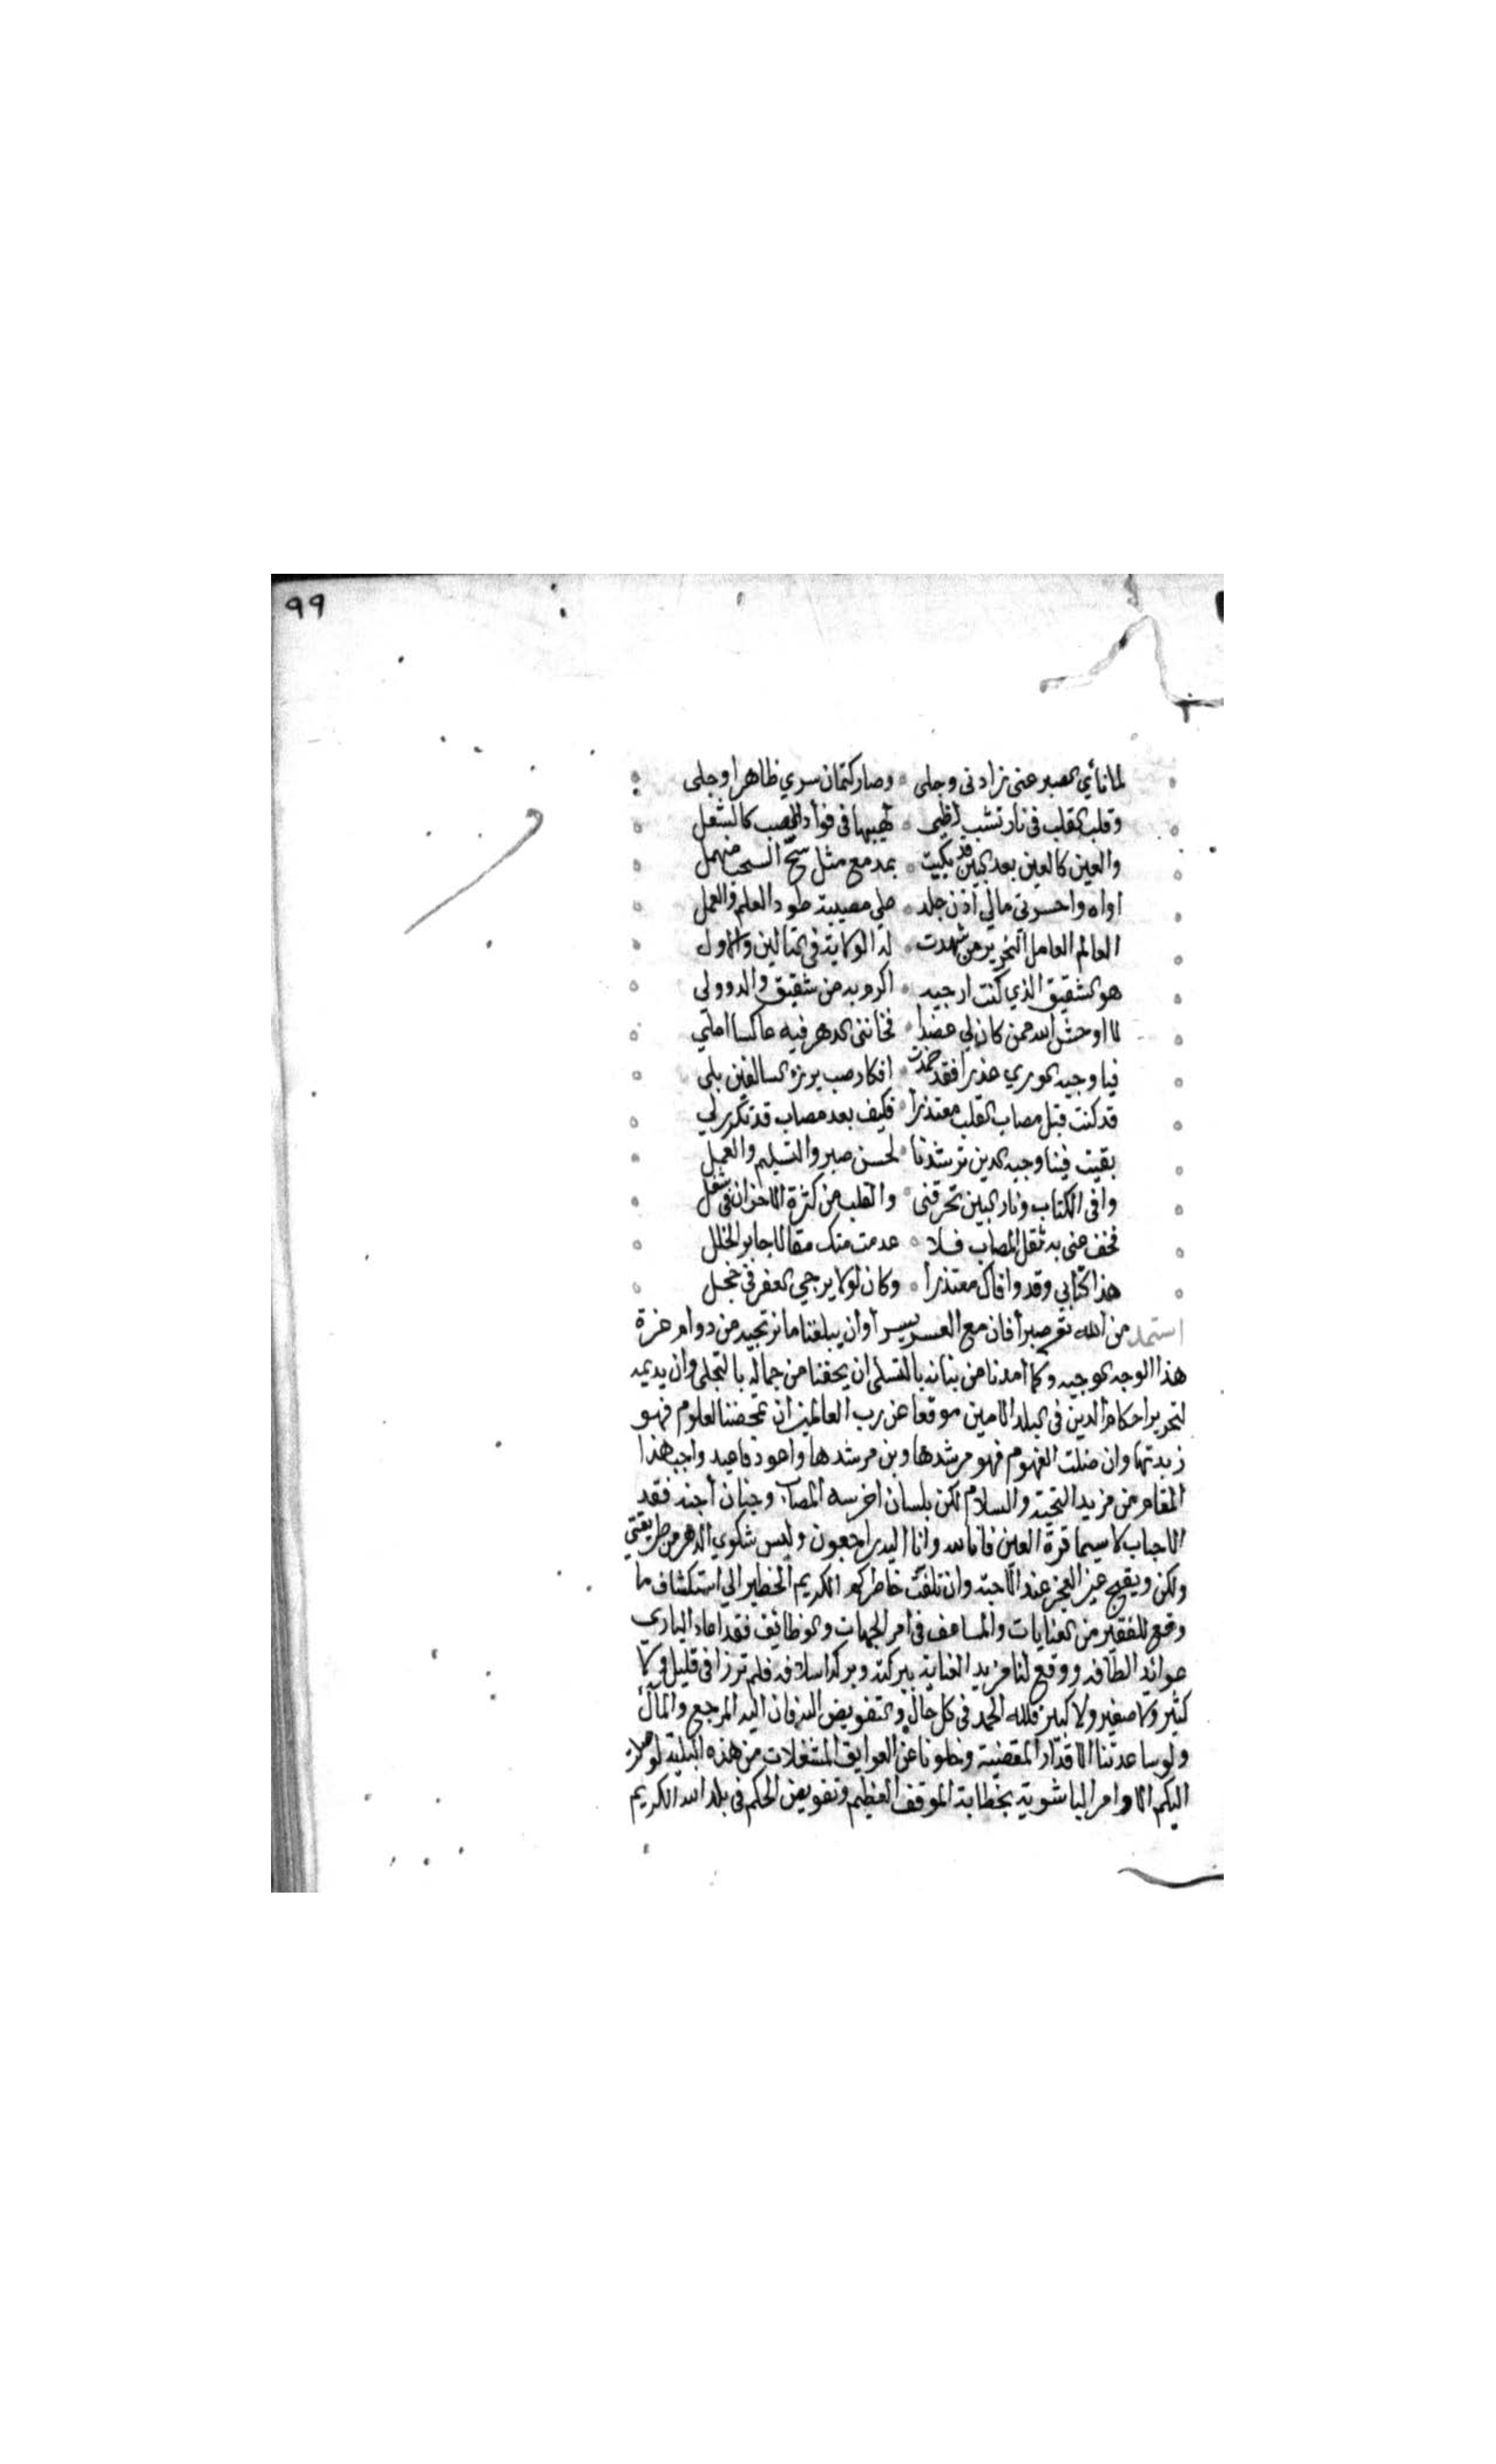 ٩٩
لما نأي الصبر عني زادني وجلي ٠ وصار كتمان سري ظاهرا وجلي
وقلب القلب في نار تشب لظي ٠ لهيبها في فوأد الصب كالشعل
والعين كالعين بعد البين قد بكيت ٠ بمدمع مثل سح السحب منهمل
اواه واحسرتي مالي اذن جلد ٠ علي مصيبة طود العلم والعمل
العالم العامل النحرير من شهدت ٠ له الولاية في التالين والاول
هو الشقيق الذي كنت ارجيه ٠ اكرم به من شقيق والد وولي
لا اوحش الله ممن كان لي عضدا ٠ فخانني الدهر فيه عاكسا املي
فيا وجيه الوري عذرا فقد خمدت ٠ افكار صب برزء السالفين بلي
قد كنت قبل مصاب القلب معتذرا ٠ فكيف بعد مصاب قد تكرر لي
بقيت فينا وجيه الدين ترشدنا ٠ لحسن صبر والتسليم والعمل
وافي الكتاب ونار البين تحرقني ٠ والقلب من كثرة الاحزان في شغل
فخف عني به ثقل المصاب فلا ٠ عدمت منك مقالا جابر الخلل
هذا كتابي وقد وافاك معتذرا ٠ وكان لولا يرجي العفر في خجل
استمد من الله تع صبرا فان مع العسر يسرا وان يبلغنا ما نرتجيه من دوام عزة
هذا الوجه الوجيه وكما أمدنا من بنانه بالتسلي ان يحفنا من جماله بالتجلي وان يديمه
لتحرير احكام الدين في البلد الامين موقعا عن رب العالمين ان تمخضنا لعلوم فهو
زبدتها وان ضلت الفهوم فهو مرشدها وبن مرشدها واعود فاعيد واجب هذا
المقام من مزيد التحية والسلام لكن بلسان اخرسه المصاب وجنان أجنه فقد
الاحباب لا سيما قرة العين فانا لله وانا اليه راجعون وليس شكوي الدهر من طريقتي
ولكن ويقبح غير العجز عند الاحبة وان تلفت خاطركم الكريم الخطير الي استكشاف ما
وقع للفقير من العنايات والمساعف في امر الجهات والوظائف فقد اعاد الباري
عوايد الطافه ووقع لنا مزيد العناية ببركته وبركة اسلافه فلم ترزا في قليل ولا
كثير ولا صغير ولا كبير فلله الحمد في كل حال والتفويض اليه فان اليه المرجع والمآل
ولو ساعدتنا الاقدار المقضية وخلونا عن العوايق المشغلات من هذه البلية لوصلت
اليكم الاوامر الباشوية بخطابة الموقف العظيم وتفويض الحكم في بلد الله الكريم